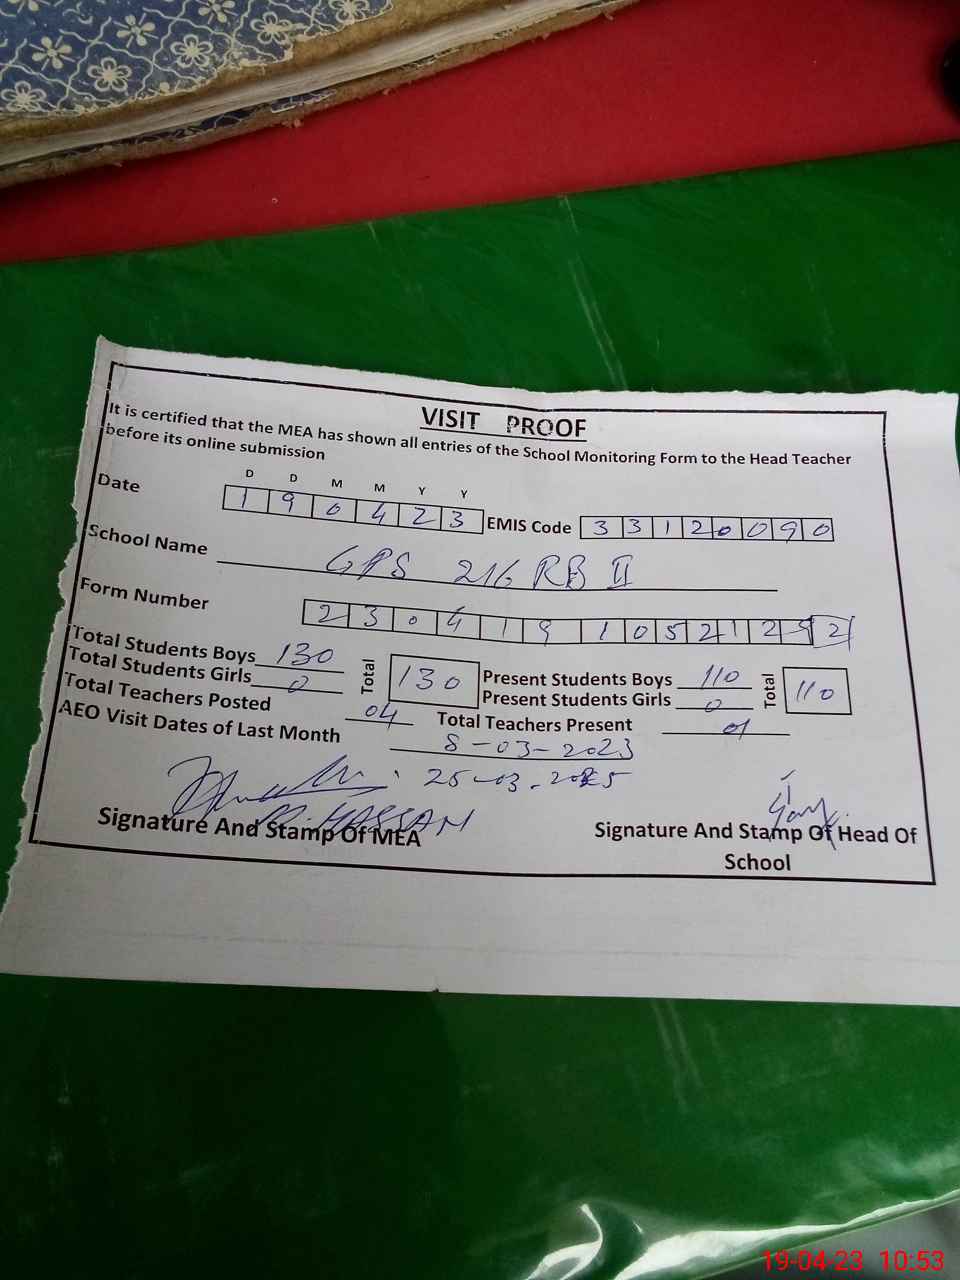 VISIT PROOF
It is certified that the MEA has shown all entries of the School Monitoring Form to the Head Teacher
before its online submission
D D M M Y Y
Date 1 9 0 4 2 3 EMIS Code 3 3 1 2 0 0 9 0
School Name GPS 216 RB II
Form Number 2 3 0 4 1 9 1 0 5 2 1 2 2
Total Students Boys 130 Total 130 Present Students Boys 110 Total 110
Total Students Girls 0 Present Students Girls 0
Total Teachers Posted 04 Total Teachers Present
AEO Visit Dates of Last Month 8-03-2023
25-03-
HASSAN
Signature And Stamp Of MEA Signature And Stamp Of Head Of
School
19-04-23 10:53